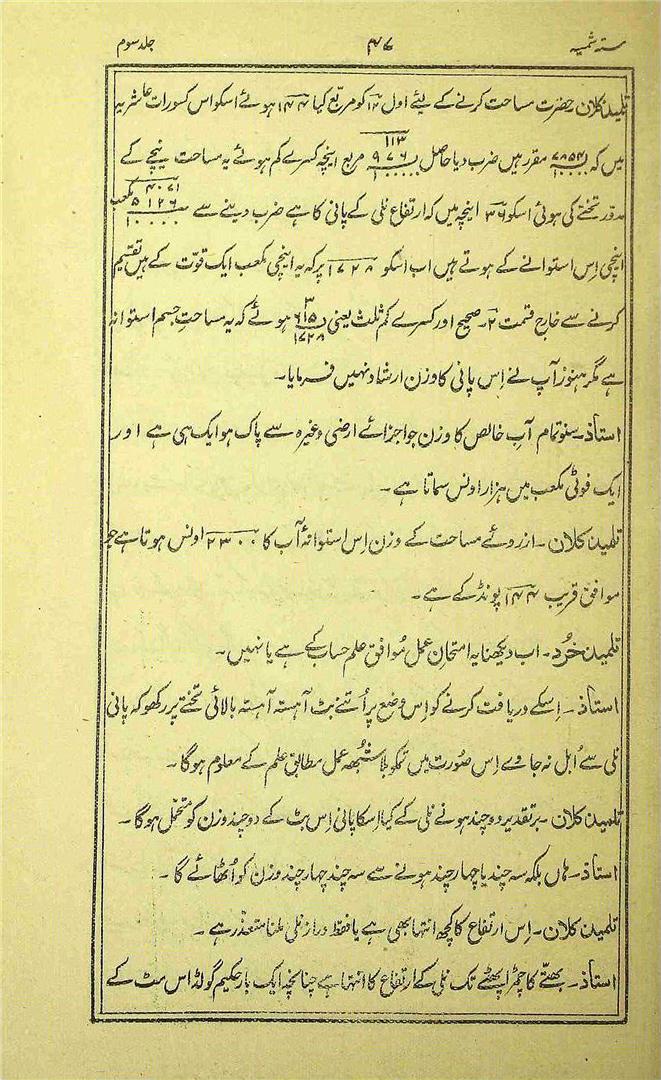 ستہ شمیہ ۴۷ جلد سوم
تلمیذ کلان۔ حضرت مساحت کرنے کے لیئے اول ۱۲ کو مربّع کیا ۱۴۴ ہوئے اسکو اس کسورات عاشریہ
میں کہ ۷۸۵۴ مقرر ہیں ضرب دیا حاصل ۱۱۳ ۹۷۶ مربع اینچہ کسرے کم ہوئے یہ مساحت نیچے کے
مدوّر تختے کی ہوئی اسکو ۳۶ اینچہ میں کہ ارتفاع نلی کے پانی کا ہے ضرب دینے سے ۴۰۷۱ ۵۱۲۶ مکعب
اینچی اِس استوانے کے ہوتے ہیں اب اسکو ۱۷۲۸ پر کہ یہ اینچی مکعب ایک فوٹ کے ہیں تقسیم
کرنے سے خارج قسمت ۲۔ صحیح اور کسرے کم ثلث یعنی ۶۱۵ ۱۷۲۸ ہوئے کہ یہ مساحتِ جسم استوانہ
ہے مگر ہنوز آپ نے اِس پانی کا وزن ارشاد نہیں فرمایا۔
استاذ۔ سنو تمام آبِ خالص کا وزن جو اجزائے ارضی وغیرہ سے پاک ہو ایک ہی ہے اور
ایک فوٹی مکعب میں ہزار اونس سماتا ہے۔
تلمیذ کلان۔ ازروئے مساحت کے وزن اِس استوانۂ آب کا ۲۳۰۰ اونس ہوتا ہے جو
موافق قریب ۱۴۴ پونڈ کے ہے۔
تلمیذ خُرد۔ اب دیکھنا یہ امتحان عمل مُوافق علم حساب کے ہے یا نہیں۔
استاذ۔ اِسکے دریافت کرنے کو اِس وضع پر اُتنے بٹ آہستہ آہستہ بالائی تختے پر رکھو کہ پانی
نلی سے اُبل نہ جاوے اِس صورت میں تمکو بلا شبہہ عمل مطابق علم کے معلوم ہوگا۔
تلمیذ کلان۔ بر تقدیر دو چند ہونے نلی کے کیا اِسکا پانی اِس بٹ کے دو چند وزن کو متحمل ہوگا۔
استاذ۔ ہاں بلکہ سہ چند یا چہار چند ہونے سے سہ چند چہار چند وزن کو اُٹھائے گا۔
تلمیذ کلان۔ اِس ارتفاع کا کچھ انتہا بھی ہے یا فقط دراز نلی ملنا متعذر ہے۔
استاذ۔ بھتّے کا چمڑا پھٹنے تک نلی کے ارتفاع کا انتہا ہے چنانچہ ایک بار حکیم گولڈ اس مٹ کے